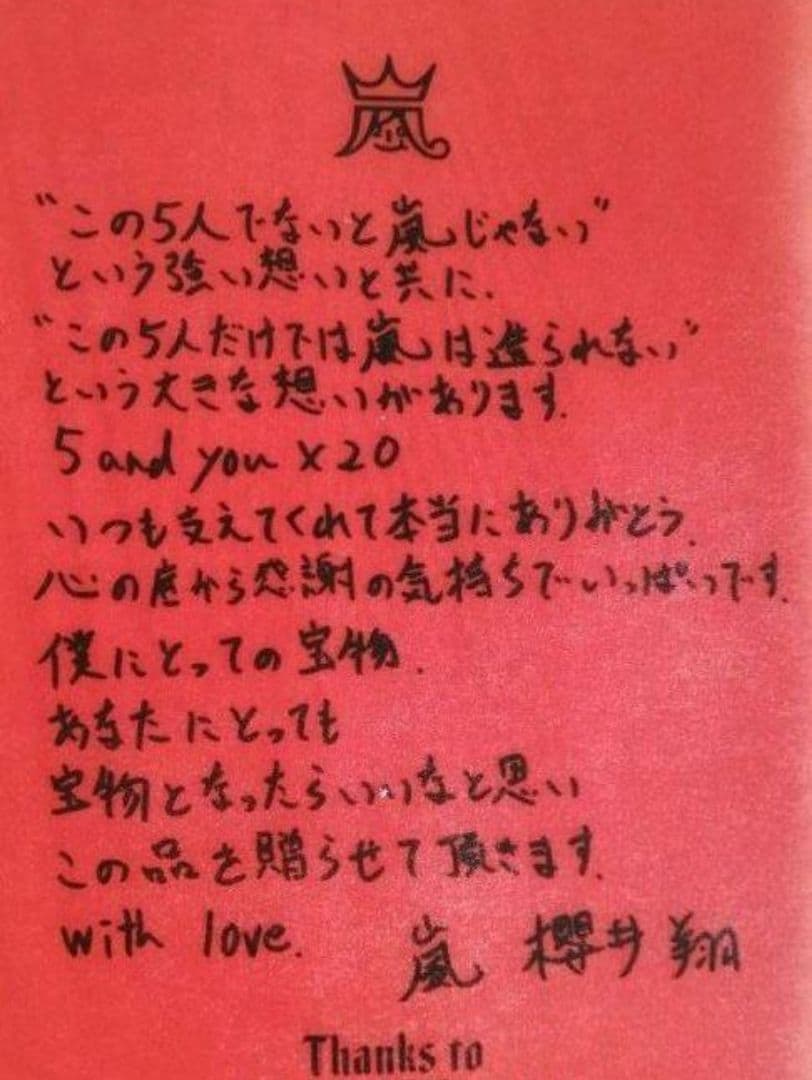 嵐
"この5人でないと嵐じゃない"
という強い想いと共に、
"この5人だけでは嵐は造られない"
という大きな想いがあります。
5 and you × 20
いつも支えてくれて本当にありがとう。
心の底から感謝の気持ちでいっぱいです。
僕にとっての宝物。
あなたにとっても
宝物となったらいいなと思い
この品を贈らせて頂きます。
with love. 嵐 櫻井 翔
Thanks to